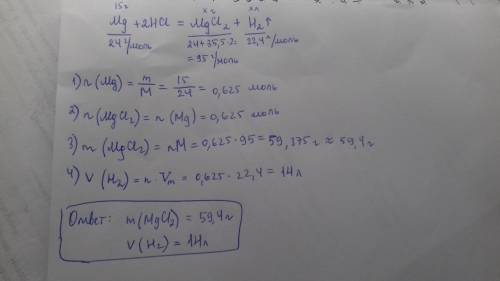 15г xг xл
Mg + 2HCl = MgCl₂ + H₂↑
24 г/моль 24+35,5·2= 22,4 л/моль
=95 г/моль
1) n(Mg) = m/M = 15/24 = 0,625 моль
2) n(MgCl₂) = n(Mg) = 0,625 моль
3) m(MgCl₂) = nM = 0,625·95 = 59,375г ≈ 59,4г
4) V(H₂) = n·Vm = 0,625·22,4 = 14л
Ответ: m(MgCl₂) = 59,4г
V(H₂) = 14л